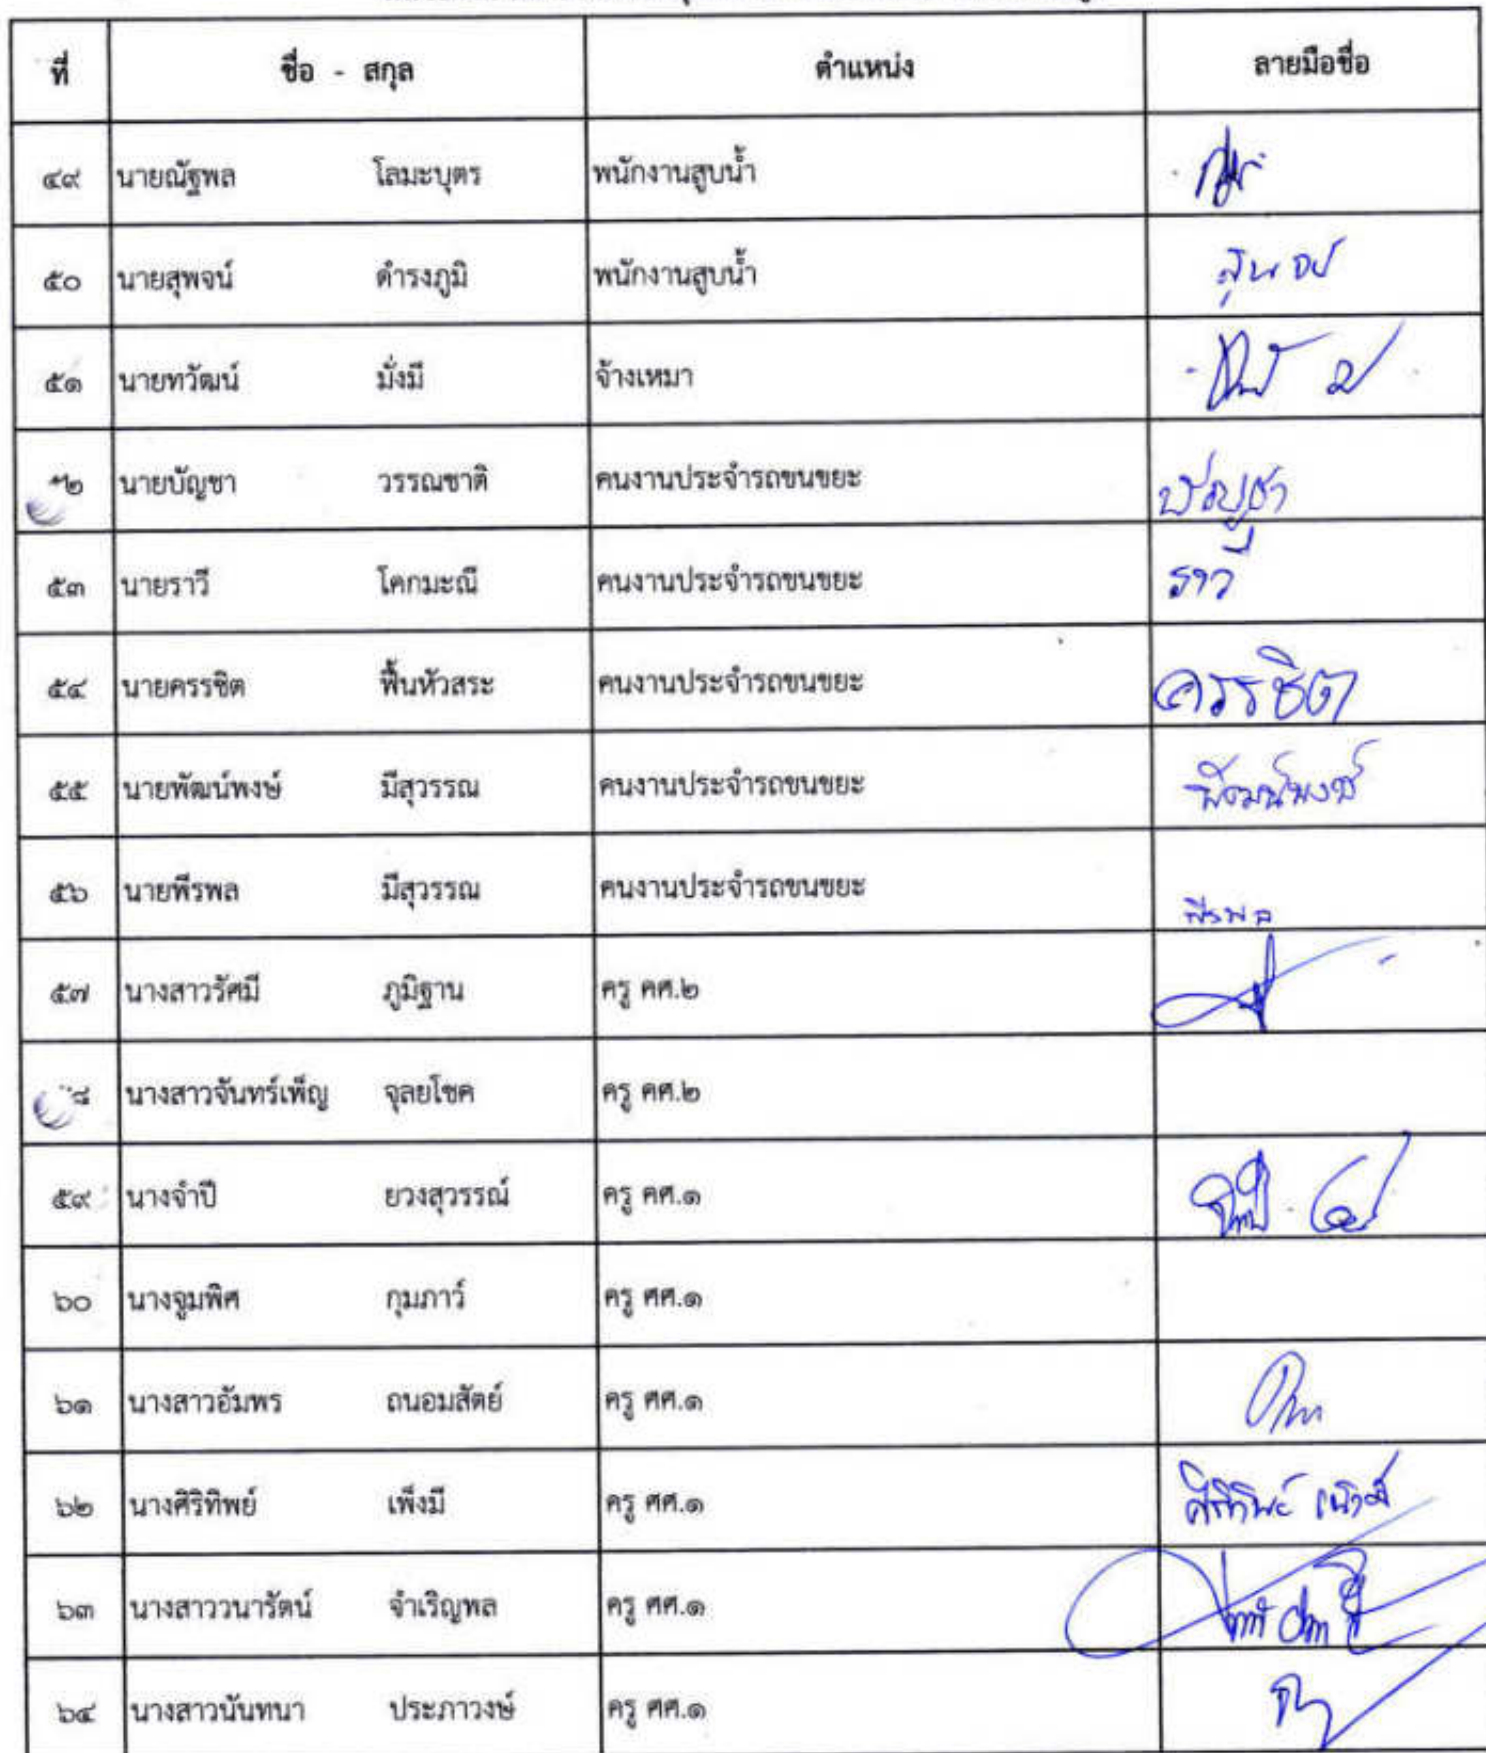 ที่ ชื่อ - สกุล ตำแหน่ง ลายมือชื่อ
๔๙ นายณัฐพล โลมะบุตร พนักงานสูบน้ำ
๕๐ นายสุพจน์ ดำรงภูมิ พนักงานสูบน้ำ สุพจน์
๕๑ นายทวัฒน์ มั่งมี จ้างเหมา
๒ นายบัญชา วรรณชาติ คนงานประจำรถขนขยะ บัญชา
๕๓ นายราวี โคกมะณี คนงานประจำรถขนขยะ ราวี
๕๔ นายครรชิต ฟื้นหัวสระ คนงานประจำรถขนขยะ ครรชิต
๕๕ นายพัฒน์พงษ์ มีสุวรรณ คนงานประจำรถขนขยะ พัฒน์พงษ์
๕๖ นายพีรพล มีสุวรรณ คนงานประจำรถขนขยะ พีรพล
๕๗ นางสาวรัศมี ภูมิฐาน ครู คศ.๒
๘ นางสาวจันทร์เพ็ญ จุลยโชค ครู คศ.๒
๕๙ นางจำปี ยวงสุวรรณ์ ครู คศ.๑
๖๐ นางจูมพิศ กุมภาว์ ครู ศศ.๑
๖๑ นางสาวอัมพร ถนอมสัตย์ ครู ศศ.๑
๖๒ นางศิริทิพย์ เพ็งมี ครู ศศ.๑ ศิริทิพย์ เพ็งมี
๖๓ นางสาววนารัตน์ จำเริญพล ครู ศศ.๑
๖๔ นางสาวนันทนา ประภาวงษ์ ครู ศศ.๑